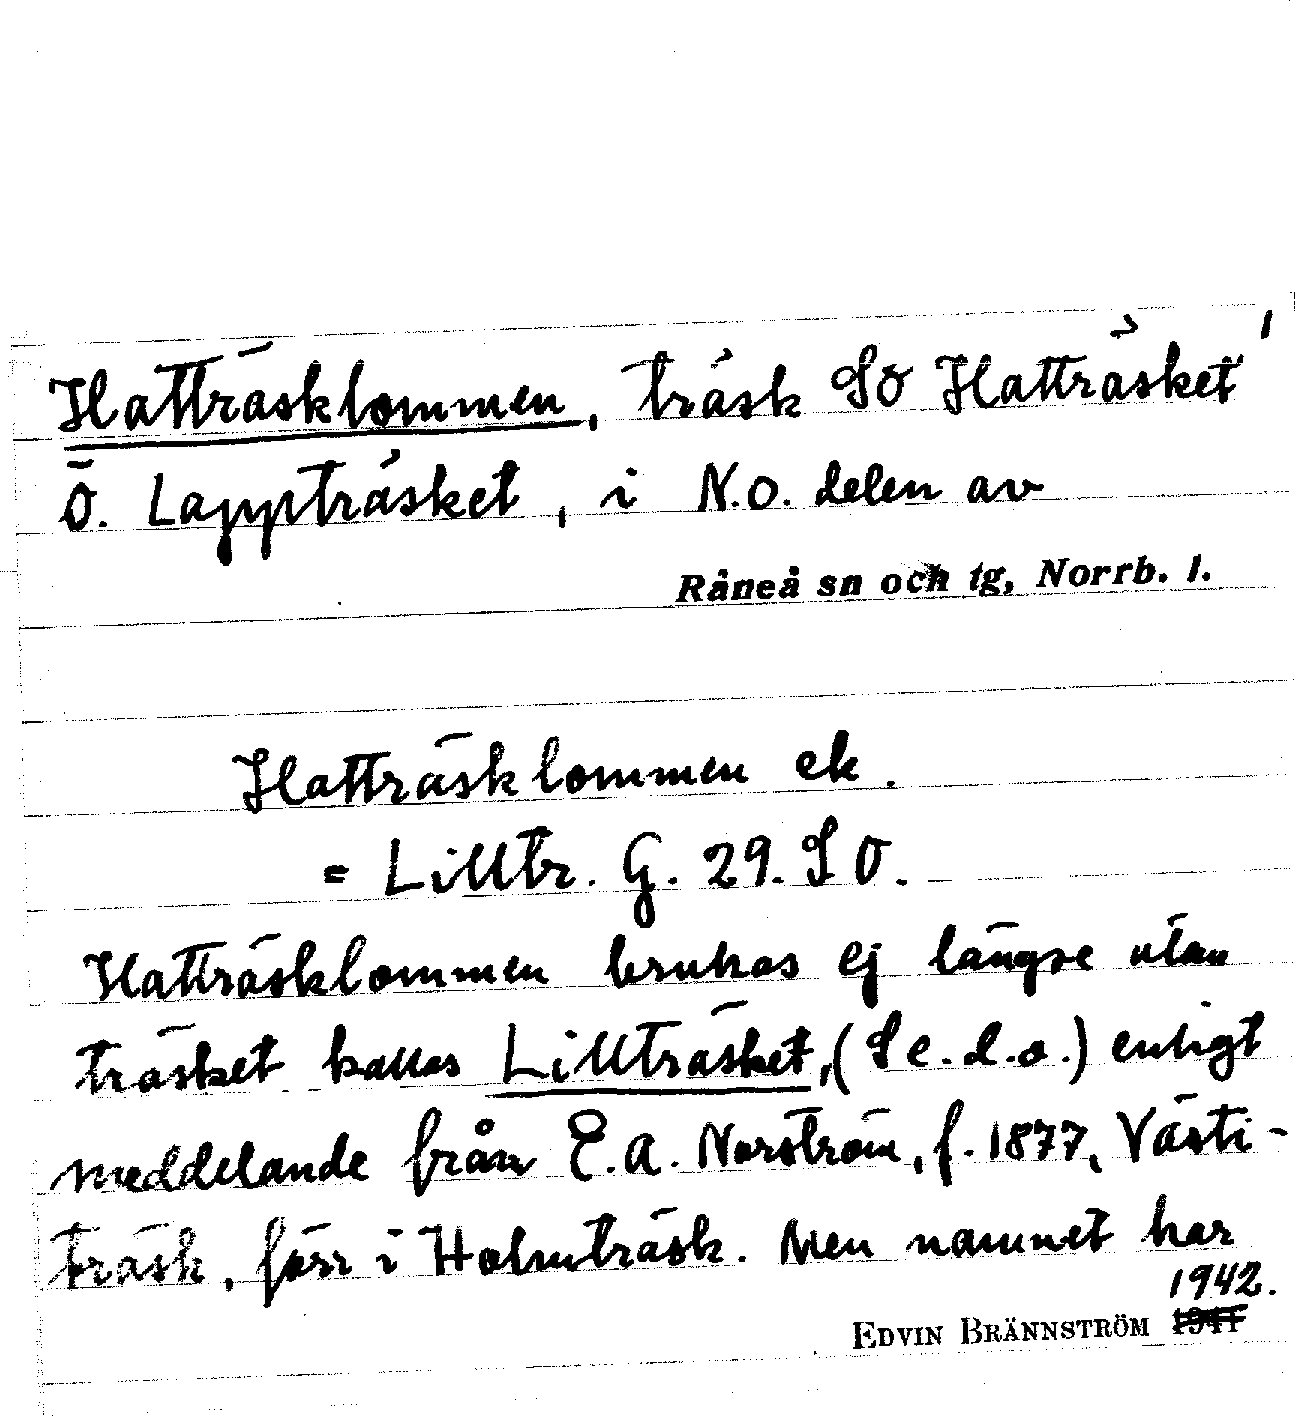 Hatträsklommen, träsk SO Hatträsket
Ö. Lappträsket, i N.O. delen av
Råneå sn och tg, Norrb. l.
Hatträsklommen ek.
= Lilltr. G. 29. S O.
Hatträsklommen brukas ej längre utan
träsket kallas Lillträsket, (S e. d. o.) enligt
meddelande från E. A. Norström, f. 1877, Västi-
träsk, förr i Holmträsk. Men namnet har
1942.
EDVIN BRÄNNSTRÖM 1941